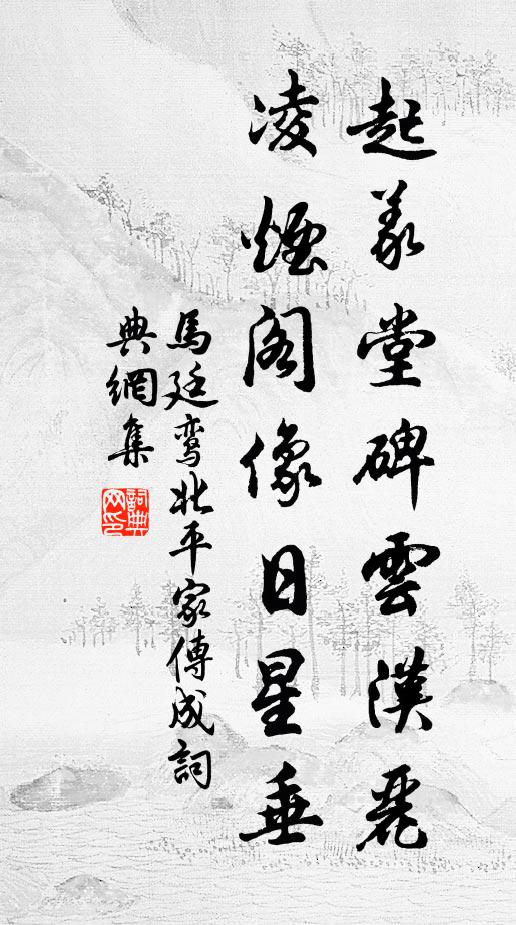 起義堂碑雲漢麗
凌煙閣像日星垂
馬廷鸞北平家傳成詞
典網集
詞典
網印